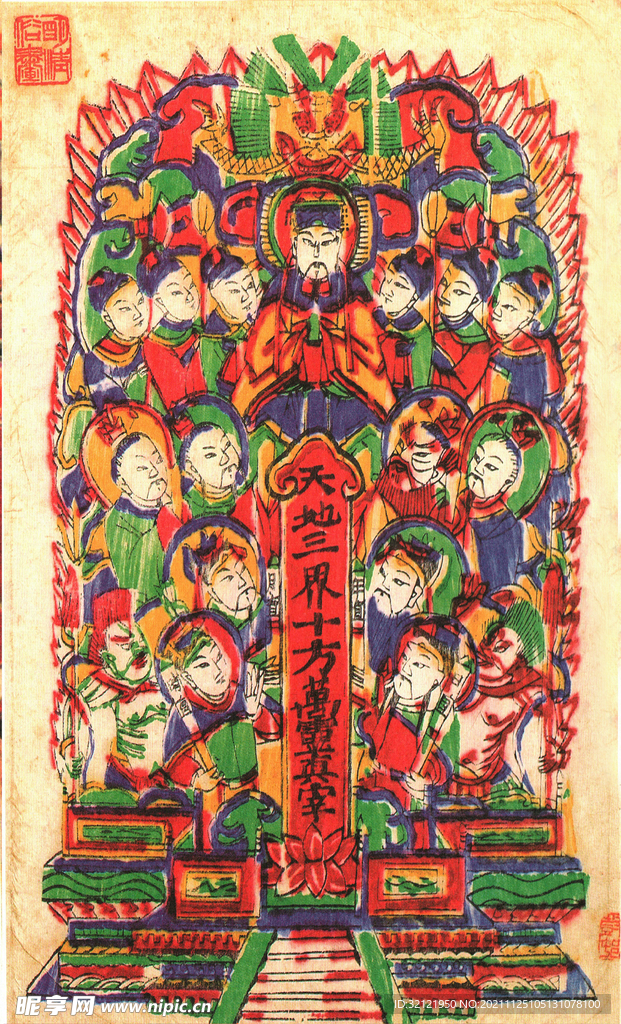 天地三界十方萬靈真宰
昵享网 www.nipic.cn
ID:32121950 NO:20211125105131078100